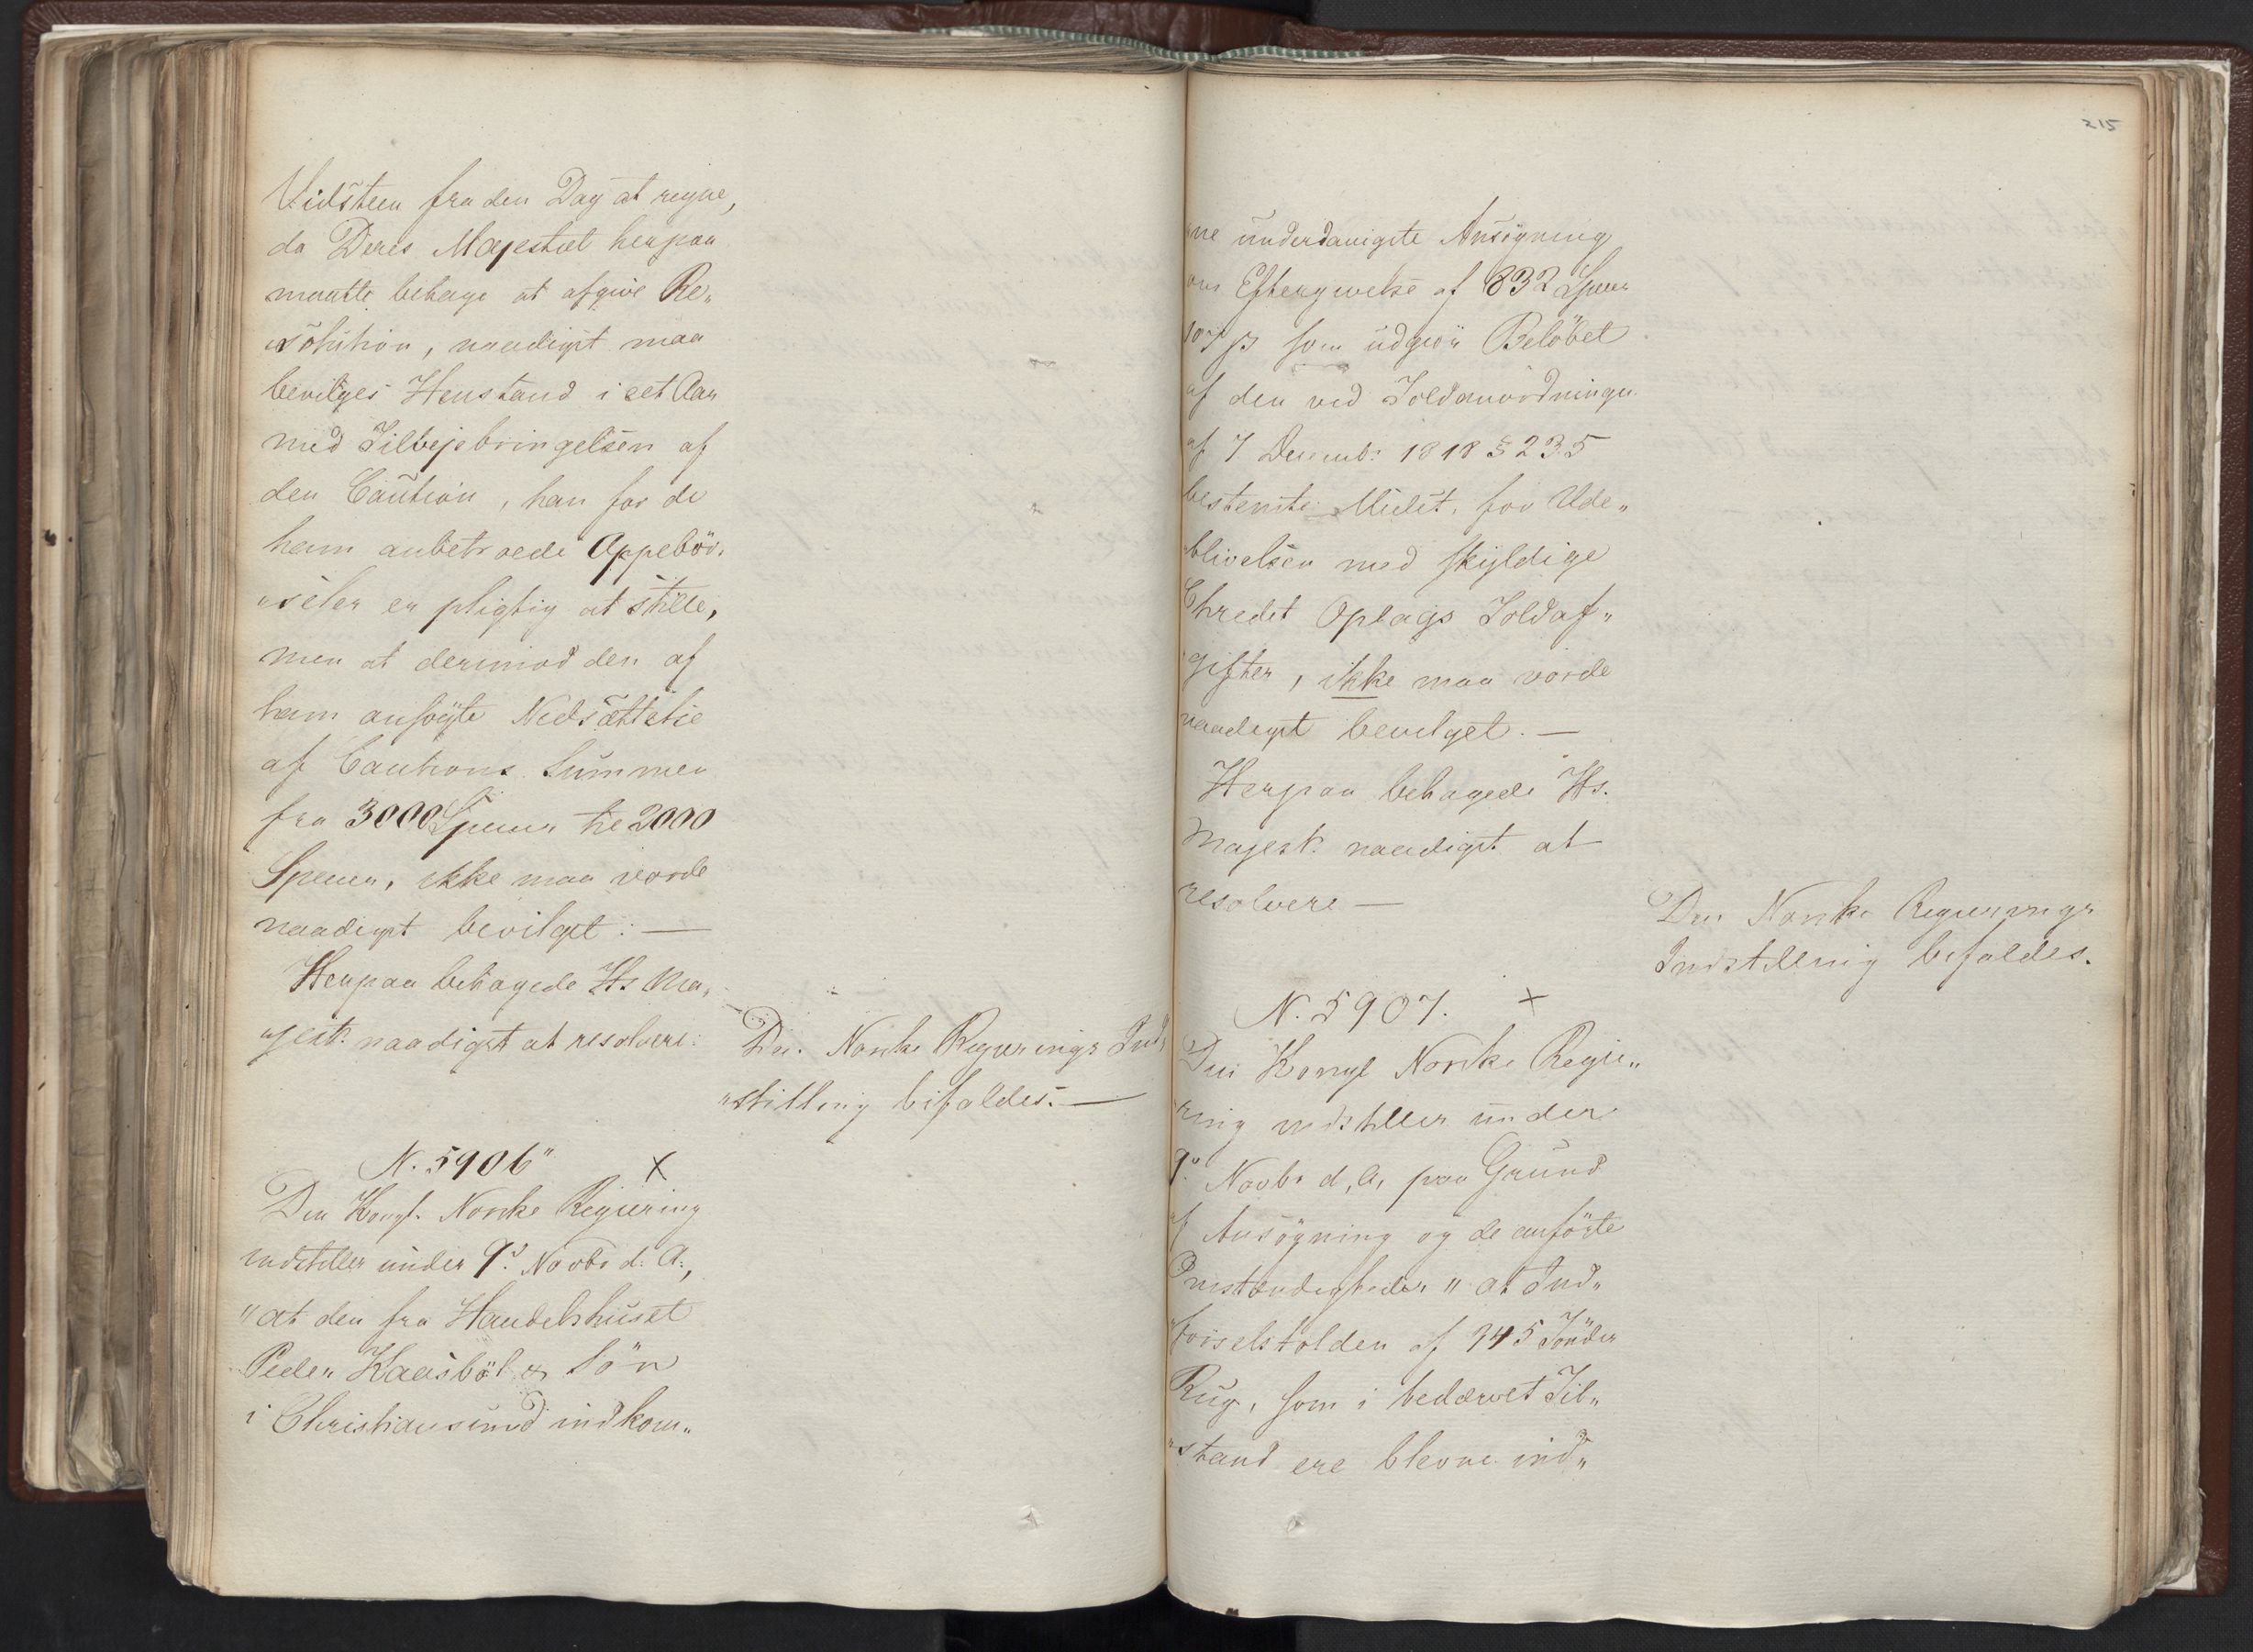 Vidsteen fra den Dag at regne,
da Deres Majestæt herpaa
maatte behage at afgive Re„
„solution, naadigst maa
bevilges Henstand i eet Aar
med Tilvejebringelsen af
den Caution, han for de
ham anbetroede Oppebör„
„seler er pligtig at stille,
men at derimod den af
ham ansögte Nedsættelse
af Cautions Summen
fra 3000 Specier til 2000
Specier, ikke maa vorde
naadigst bevilget: —
Herpaa behagede Hs Ma„
„jest: naadigst at resolvere:
Den Norske Regjerings Ind„
„stilling bifaldes. —
N. 5906 "
X
Den Kongl. Norske Regjering
indstiller under 9de Novbr d. A.,
"at den fra Handelshuset
Peder Kaasböl & Sön
i Christiansund indkom„
215
„ne underdanigste Ansögning
om Eftergivelse af 832 Specier
107 ß som udgiör Belöbet
af den ved Toldanordningen
af 7 Decemb: 1818 § 235
bestemte Mulct, for Ude„
„blivelsen med skyldige
Credit Oplags Toldaf„
„gifter, ikke maa vorde
naadigst bevilget. —
Herpaa behagede Hs.
Majest: naadigst at
resolvere —
Den Norske Regjerings
Indstilling bifaldes.
N. 5907.
X
Den Kongl Norske Regje„
„ring indstiller under
9de Novbr d. A. paa Grund
af Ansögning og de anförte
Omstændigheder " at Ind„
„förselstolden af 145 Tönder
Rug, som i bedærvet Til„
„stand ere blevne ind„